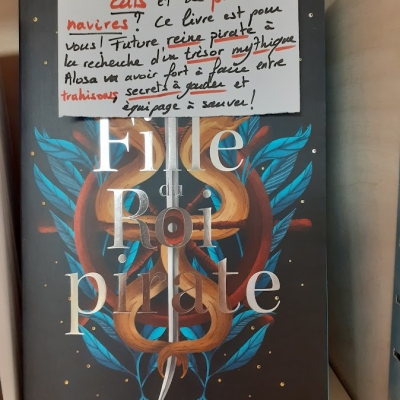 navires? Ce livre est pour
vous! Future reine pirate à
la recherche d'un trésor mythique
Alosa va avoir fort à faire entre
trahisons, secrets à garder et
équipage à sauver!
Fille
du
Roi
pirate